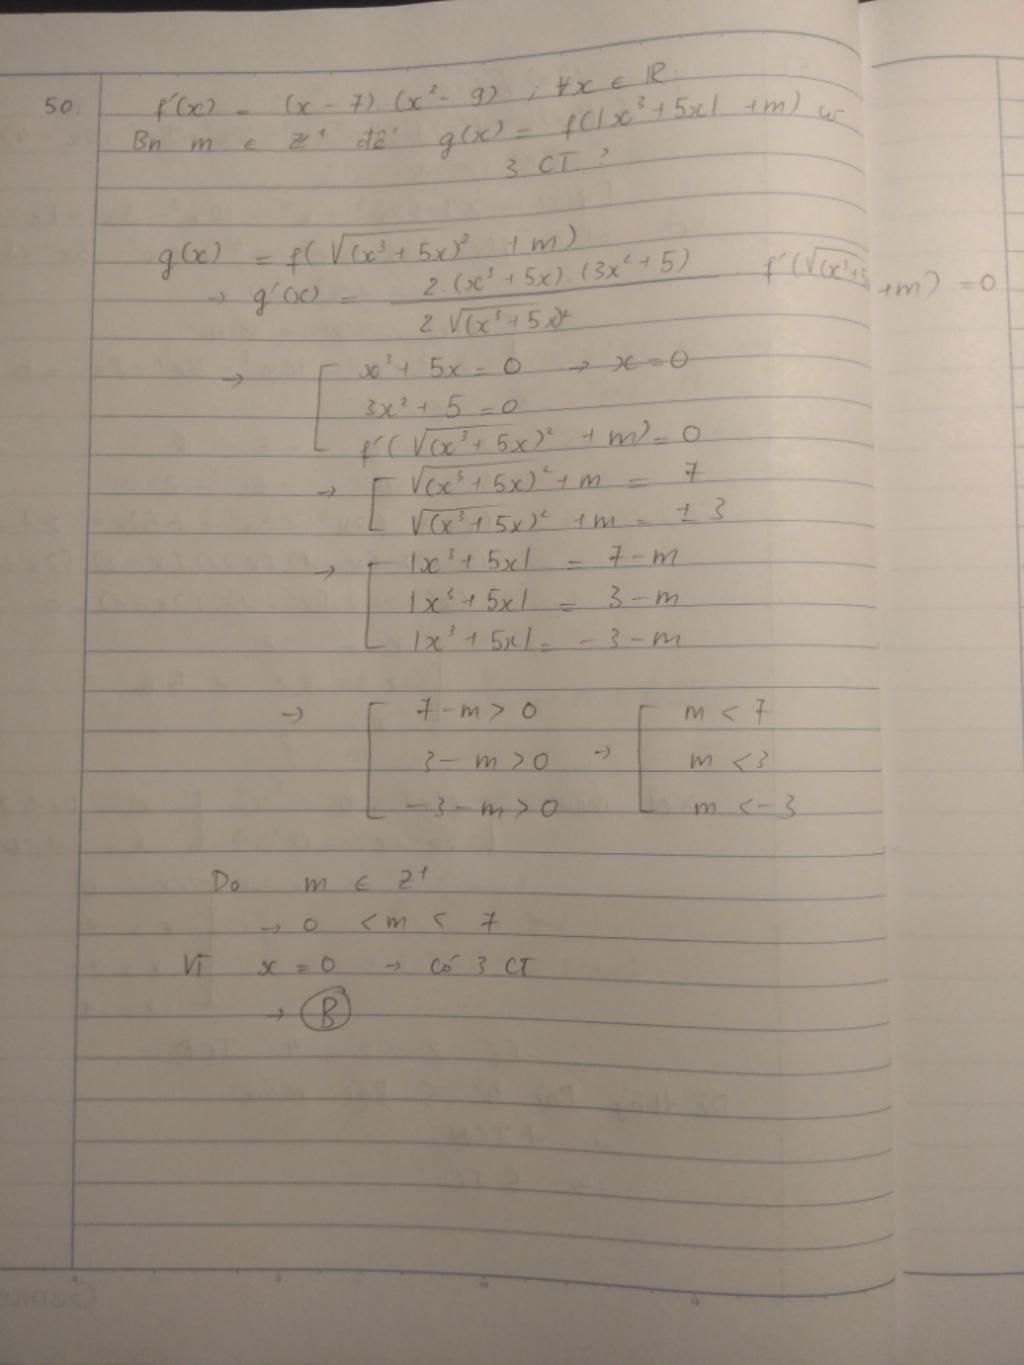 50. f'(x) = (x - 7) (x² - 9) ; ∀x ∈ R
Bn m ∈ Z⁺ để g(x) = f(|x³ + 5x| + m) có
3 CT ?
g(x) = f(√(x³ + 5x)² + m)
→ g'(x) = 2.(x³ + 5x).(3x² + 5) / 2√(x³ + 5x)² . f'(√(x³ + 5 + m) = 0
→ [ x³ + 5x = 0 → x = 0
3x² + 5 = 0
f'(√(x³ + 5x)² + m) = 0
→ [ √(x³ + 5x)² + m = 7
√(x³ + 5x)² + m = ± 3
→ [ |x³ + 5x| = 7 - m
|x³ + 5x| = 3 - m
|x³ + 5x| = - 3 - m
→ [ 7 - m > 0 → [ m < 7
3 - m > 0 m < 3
- 3 - m > 0 m < - 3
Do m ∈ Z⁺
→ 0 < m < 7
Vì x = 0 → có 3 CT
→ B
Genius